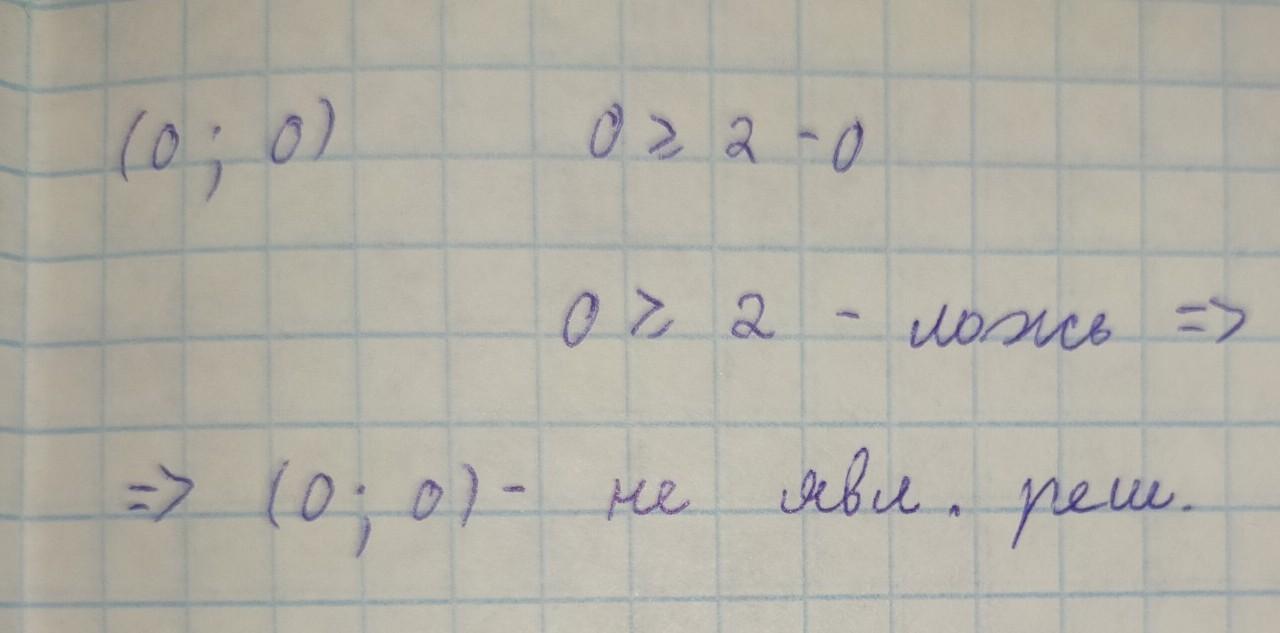 (0; 0) 0 ≥ 2 - 0
0 ≥ 2 - ложь =>
=> (0; 0) - не явл. реш.